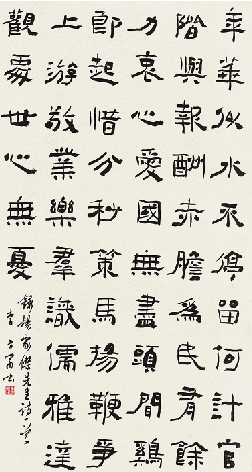 年華似水不停留何計官
階與報酬赤膽為民有餘
力衷心愛國無盡頭聞鷄
即起惜分秒策馬揚鞭爭
上游敬業樂羣識儒雅達
觀處世心無憂
錄楊家傑先生詩